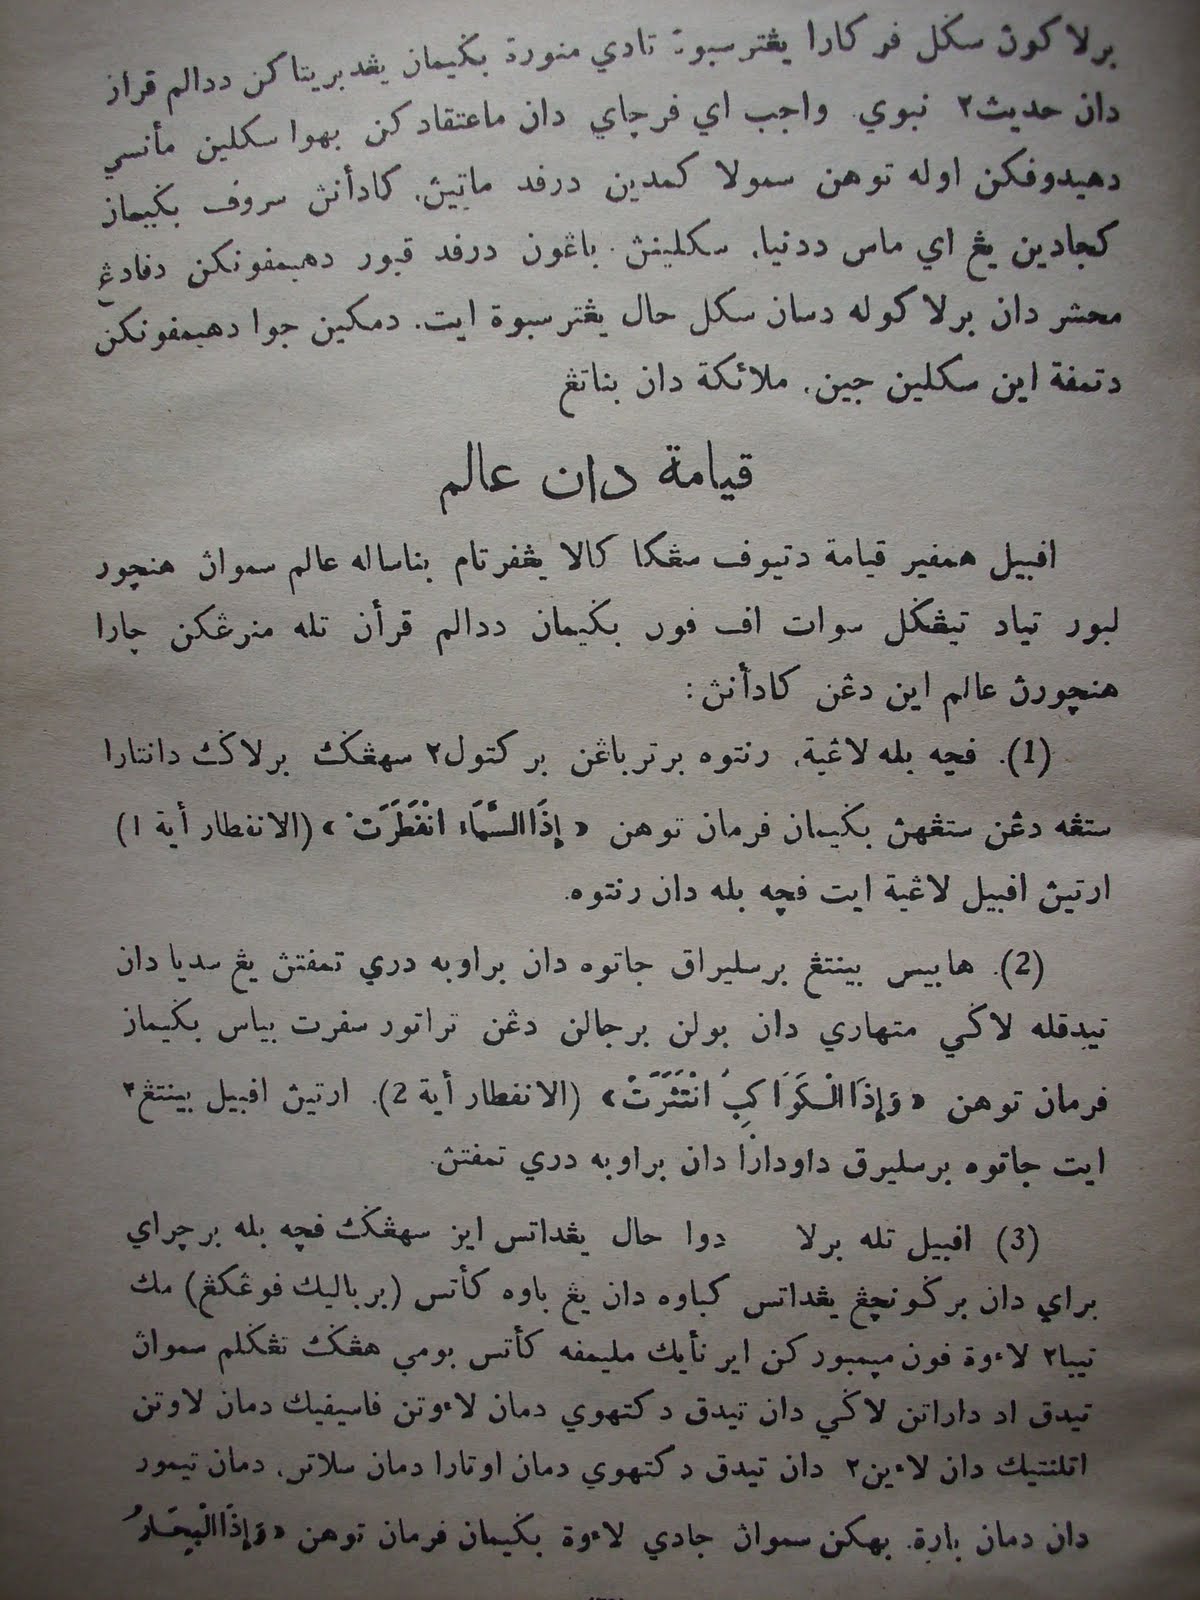 برلاكوڽ سڬل فركارا يڠترسبوة تادي منورة بڬيمان يڠدبريتاكن ددالم قرأن
دان حديث٢ نبوي. واجب اي فرچاي دان ماعتقادكن بهوا سكلين مأنسي
دهيدوفكن اوله توهن سمولا كمدين درفد ماتيڽ، كادأنڽ سروف بڬيمان
كجادين يڠ اي ماس ددنيا، سكلينڽ باڠون درفد قبور دهيمفونكن دفادڠ
محشر دان برلاكوله دسان سڬل حال يڠترسبوة ايت. دمكين جوا دهيمفونكن
دتمفة اين سكلين جين، ملائكة دان بناتڠ
قيامة دان عالم
افبيل همفير قيامة دتيوف سڠكا كالا يڠفرتام بناساله عالم سمواڽ هنچور
لبور تياد تيڠݢل سوات اف فون بڬيمان ددالم قرأن تله منرڠكن چارا
هنچورڽ عالم اين دڠن كادأنڽ :
(1). فچه بله لاڠية، رنتوه برترباڠن بركتول٢ سهڠݢ برلاݢ دانتارا
ستڠه دڠن ستڠهڽ بڬيمان فرمان توهن « إِذَا السَّمَاء انْفَطَرَتْ » (الانفطار أية 1)
ارتيڽ افبيل لاڠية ايت فچه بله دان رنتوه.
(2). هابيس بينتڠ برسليراق جاتوه دان براوبه دري تمفتڽ يڠ سديا دان
تيدقله لاݢي متهاري دان بولن برجالن دڠن تراتور سفرت بياس بڬيمان
فرمان توهن « وَإِذَا الْكَوَاكِبُ انْتَثَرَتْ » (الانفطار أية 2). ارتيڽ افبيل بينتڠ٢
ايت جاتوه برسليرق داودارا دان براوبه دري تمفتڽ.
(3) افبيل تله برلا دوا حال يڠداتس اين سهڠݢ فچه بله برچراي
براي دان برݢونچڠ يڠداتس كباوه دان يڠ باوه كأتس (برباليك فوڠكڠ) مك
تيبا٢ لاءوة فون ميمبوركن اير نأيك مليمفه كأتس بومي هڠݢ تڠݢلم سمواڽ
تيدق اد داراتن لاݢي دان تيدق دكتهوي دمان لاءوتن فاسيفيك دمان لاوتن
اتلنتيك دان لاءين٢ دان تيدق دكتهوي دمان اوتارا دمان سلاتن، دمان تيمور
دان دمان بارة. بهكن سمواڽ جادي لاءوة بڬيمان فرمان توهن « وَإِذَا الْبِحَارُ